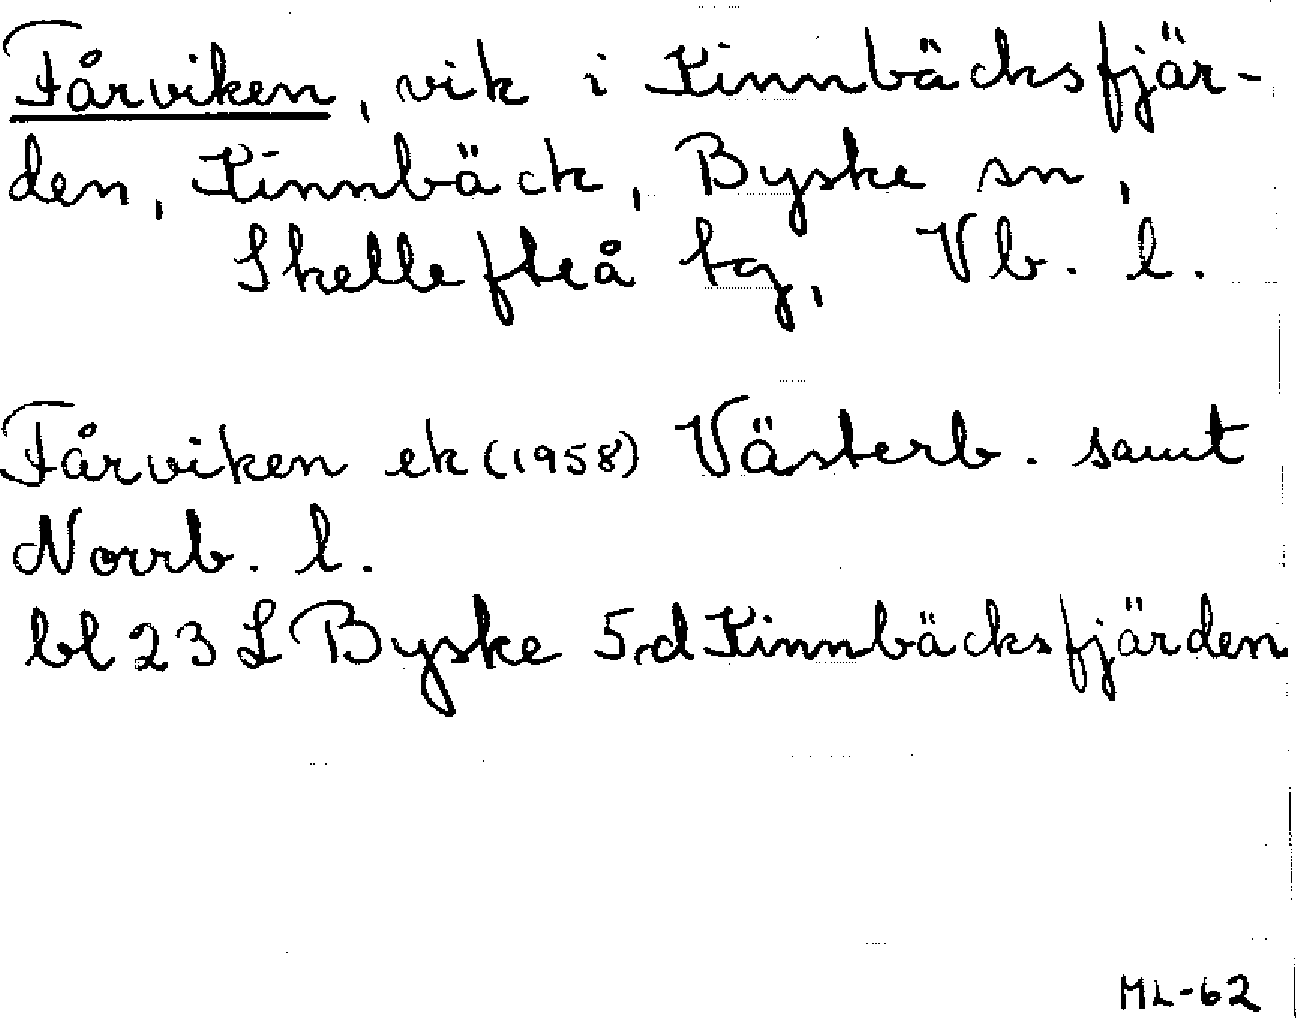 Fårviken, vik i Kinnbäcksfjär-
den, Kinnbäck, Byske sn,
Skellefteå tg, Vb. l.
Fårviken ek (1958) Västerb. samt
Norrb. l.
bl 23 L Byske 5,d Kinnbäcksfjärden
ML-62